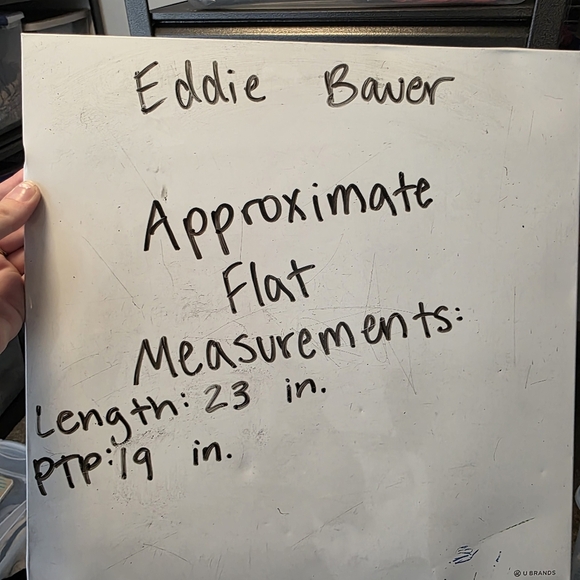 Eddie Bauer
Approximate
Flat
Measurements:
Length: 23 in.
PTP: 19 in.
U BRANDS